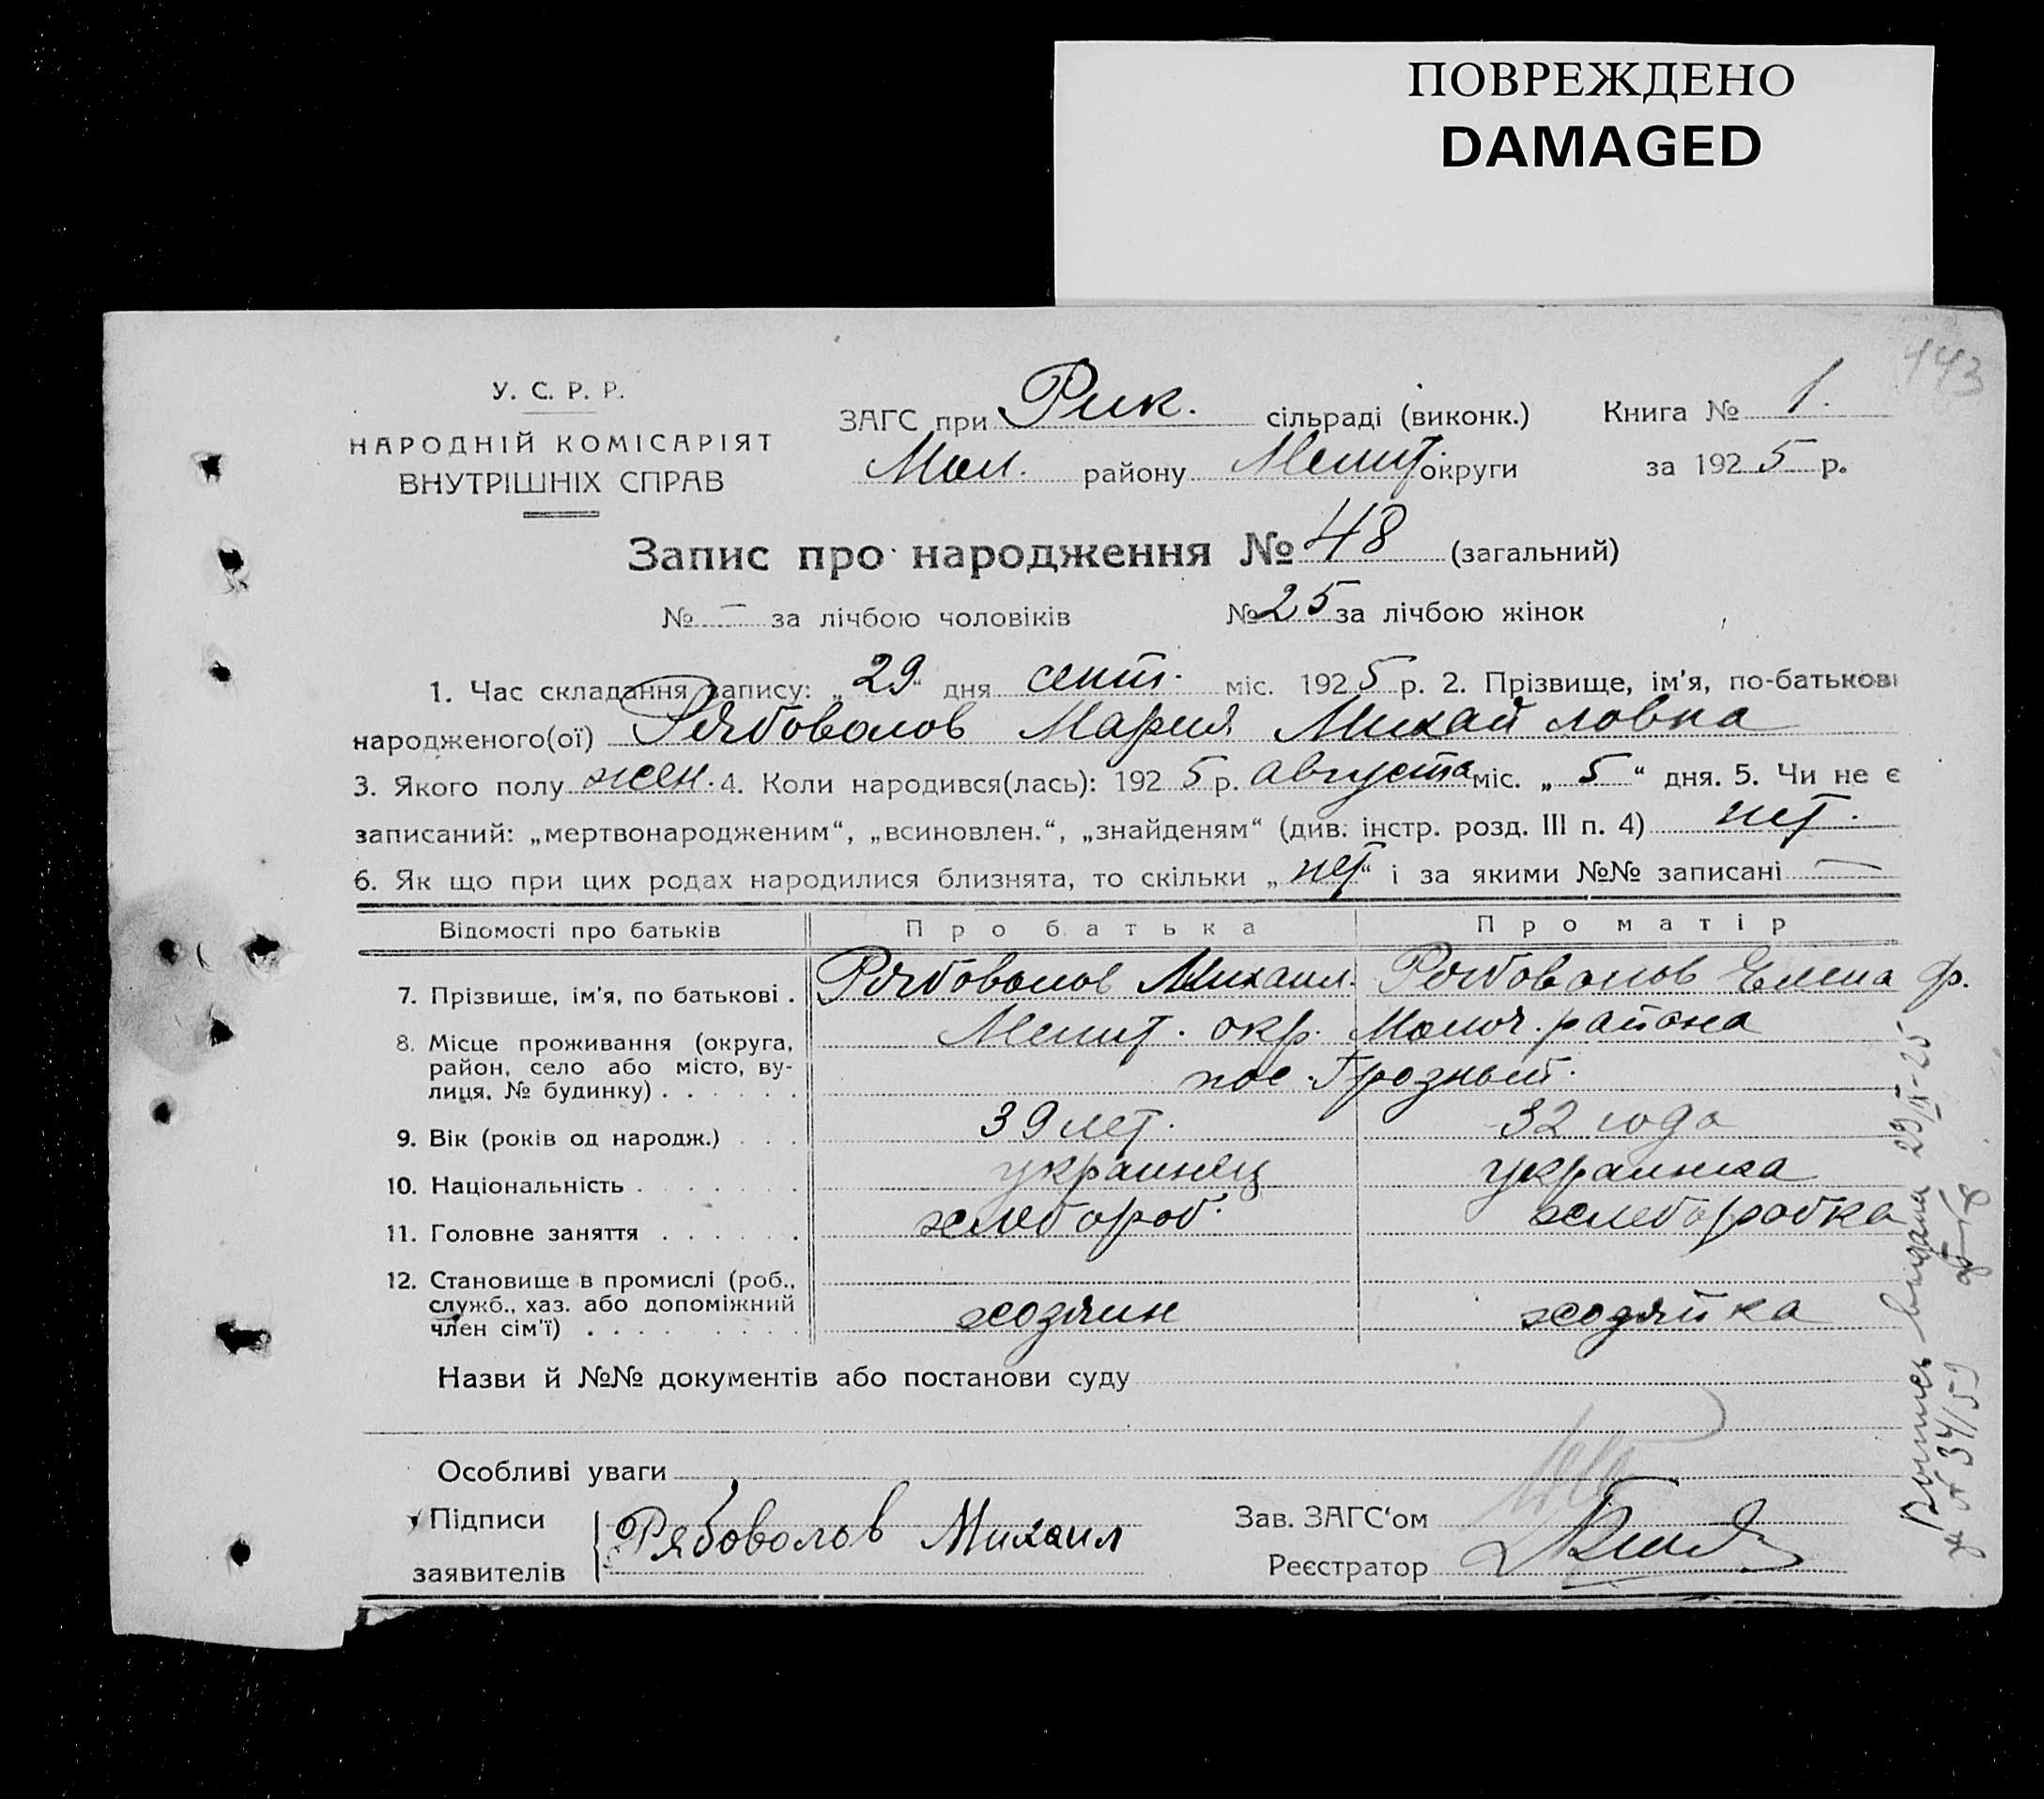 ПОВРЕЖДЕНО
DAMAGED
443
У. С. Р. Р.
НАРОДНІЙ КОМІСАРІЯТ
ВНУТРІШНІХ СПРАВ
ЗАГС при Рик. сільраді (виконк.) Книга № 1.
Мол. району Мелит. округи за 1925 р.
Запис про народження № 48 (загальний)
№ — за лічбою чоловіків № 25 за лічбою жінок
1. Час складання запису: „29“ дня сент. міс. 1925 р. 2. Прізвище, ім'я, по-батькові
народженого(ої) Рябовалов Мария Михайловна
3. Якого полу жен. 4. Коли народився(лась): 1925 р. августа міс. „5“ дня. 5. Чи не є
записаний: „мертвонародженим“, „всиновлен.“, „знайденям“ (див. інстр. розд. III п. 4) нет.
6. Як що при цих родах народилися близнята, то скільки „нет“ і за якими №№ записані —
Відомості про батьків Про батька Про матір
7. Прізвище, ім'я, по батькові . Рябовалов Михаил. Рябовалов Елена Ф.
8. Місце проживання (округа, Мелит. окр. Молоч. района
район, село або місто, ву-
лиця, № будинку) . . . . . . пос. Грозный.
9. Вік (років од народж.) . . . 39 лет. 32 года
10. Національність . . . . . . украинец украинка
11. Головне заняття . . . . . . хлебороб. хлеборобка
12. Становище в промислі (роб.,
служб., хаз. або допоміжний
член сім'ї) . . . . . . . . . хозяин хозяйка
Назви й №№ документів або постанови суду
Особливі уваги
Підписи Рябоволов Михаил Зав. ЗАГС'ом
заявителів Реєстратор
Выпись выдана 29/IX-25
№ 34/59